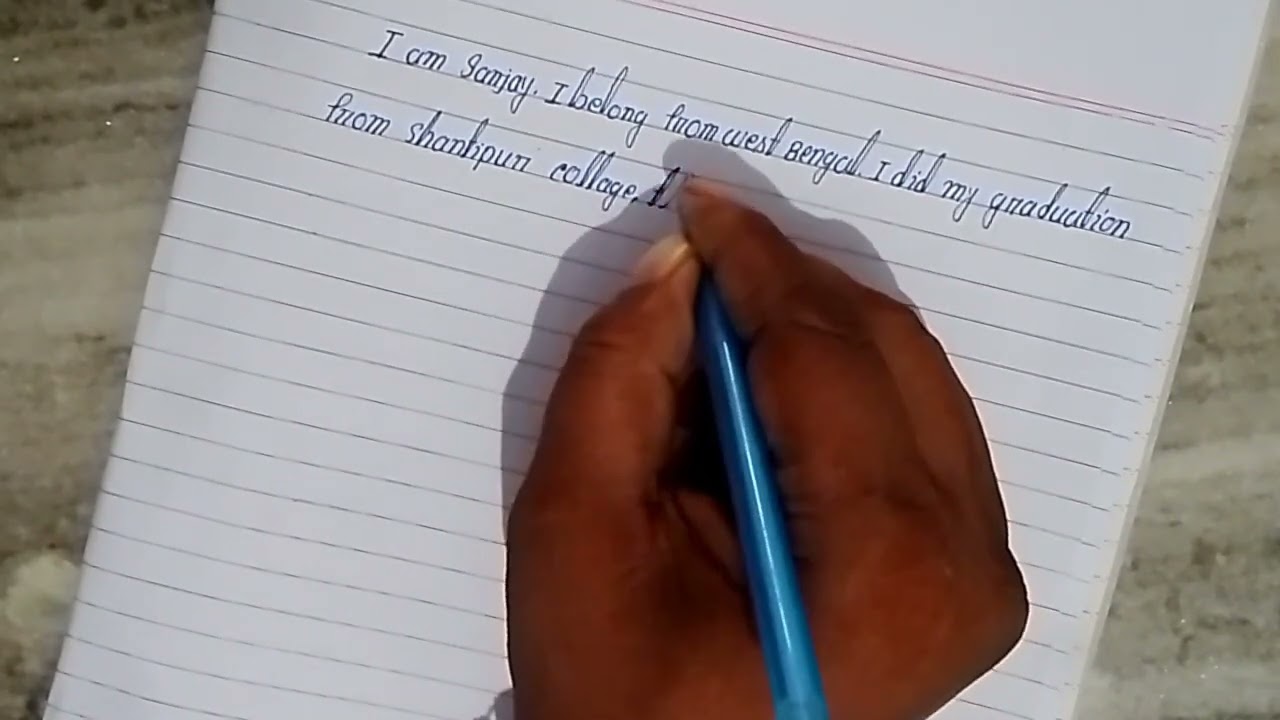 I am Sanjay. I belong from west Bengal. I did my graduation
from shantipuri collage.